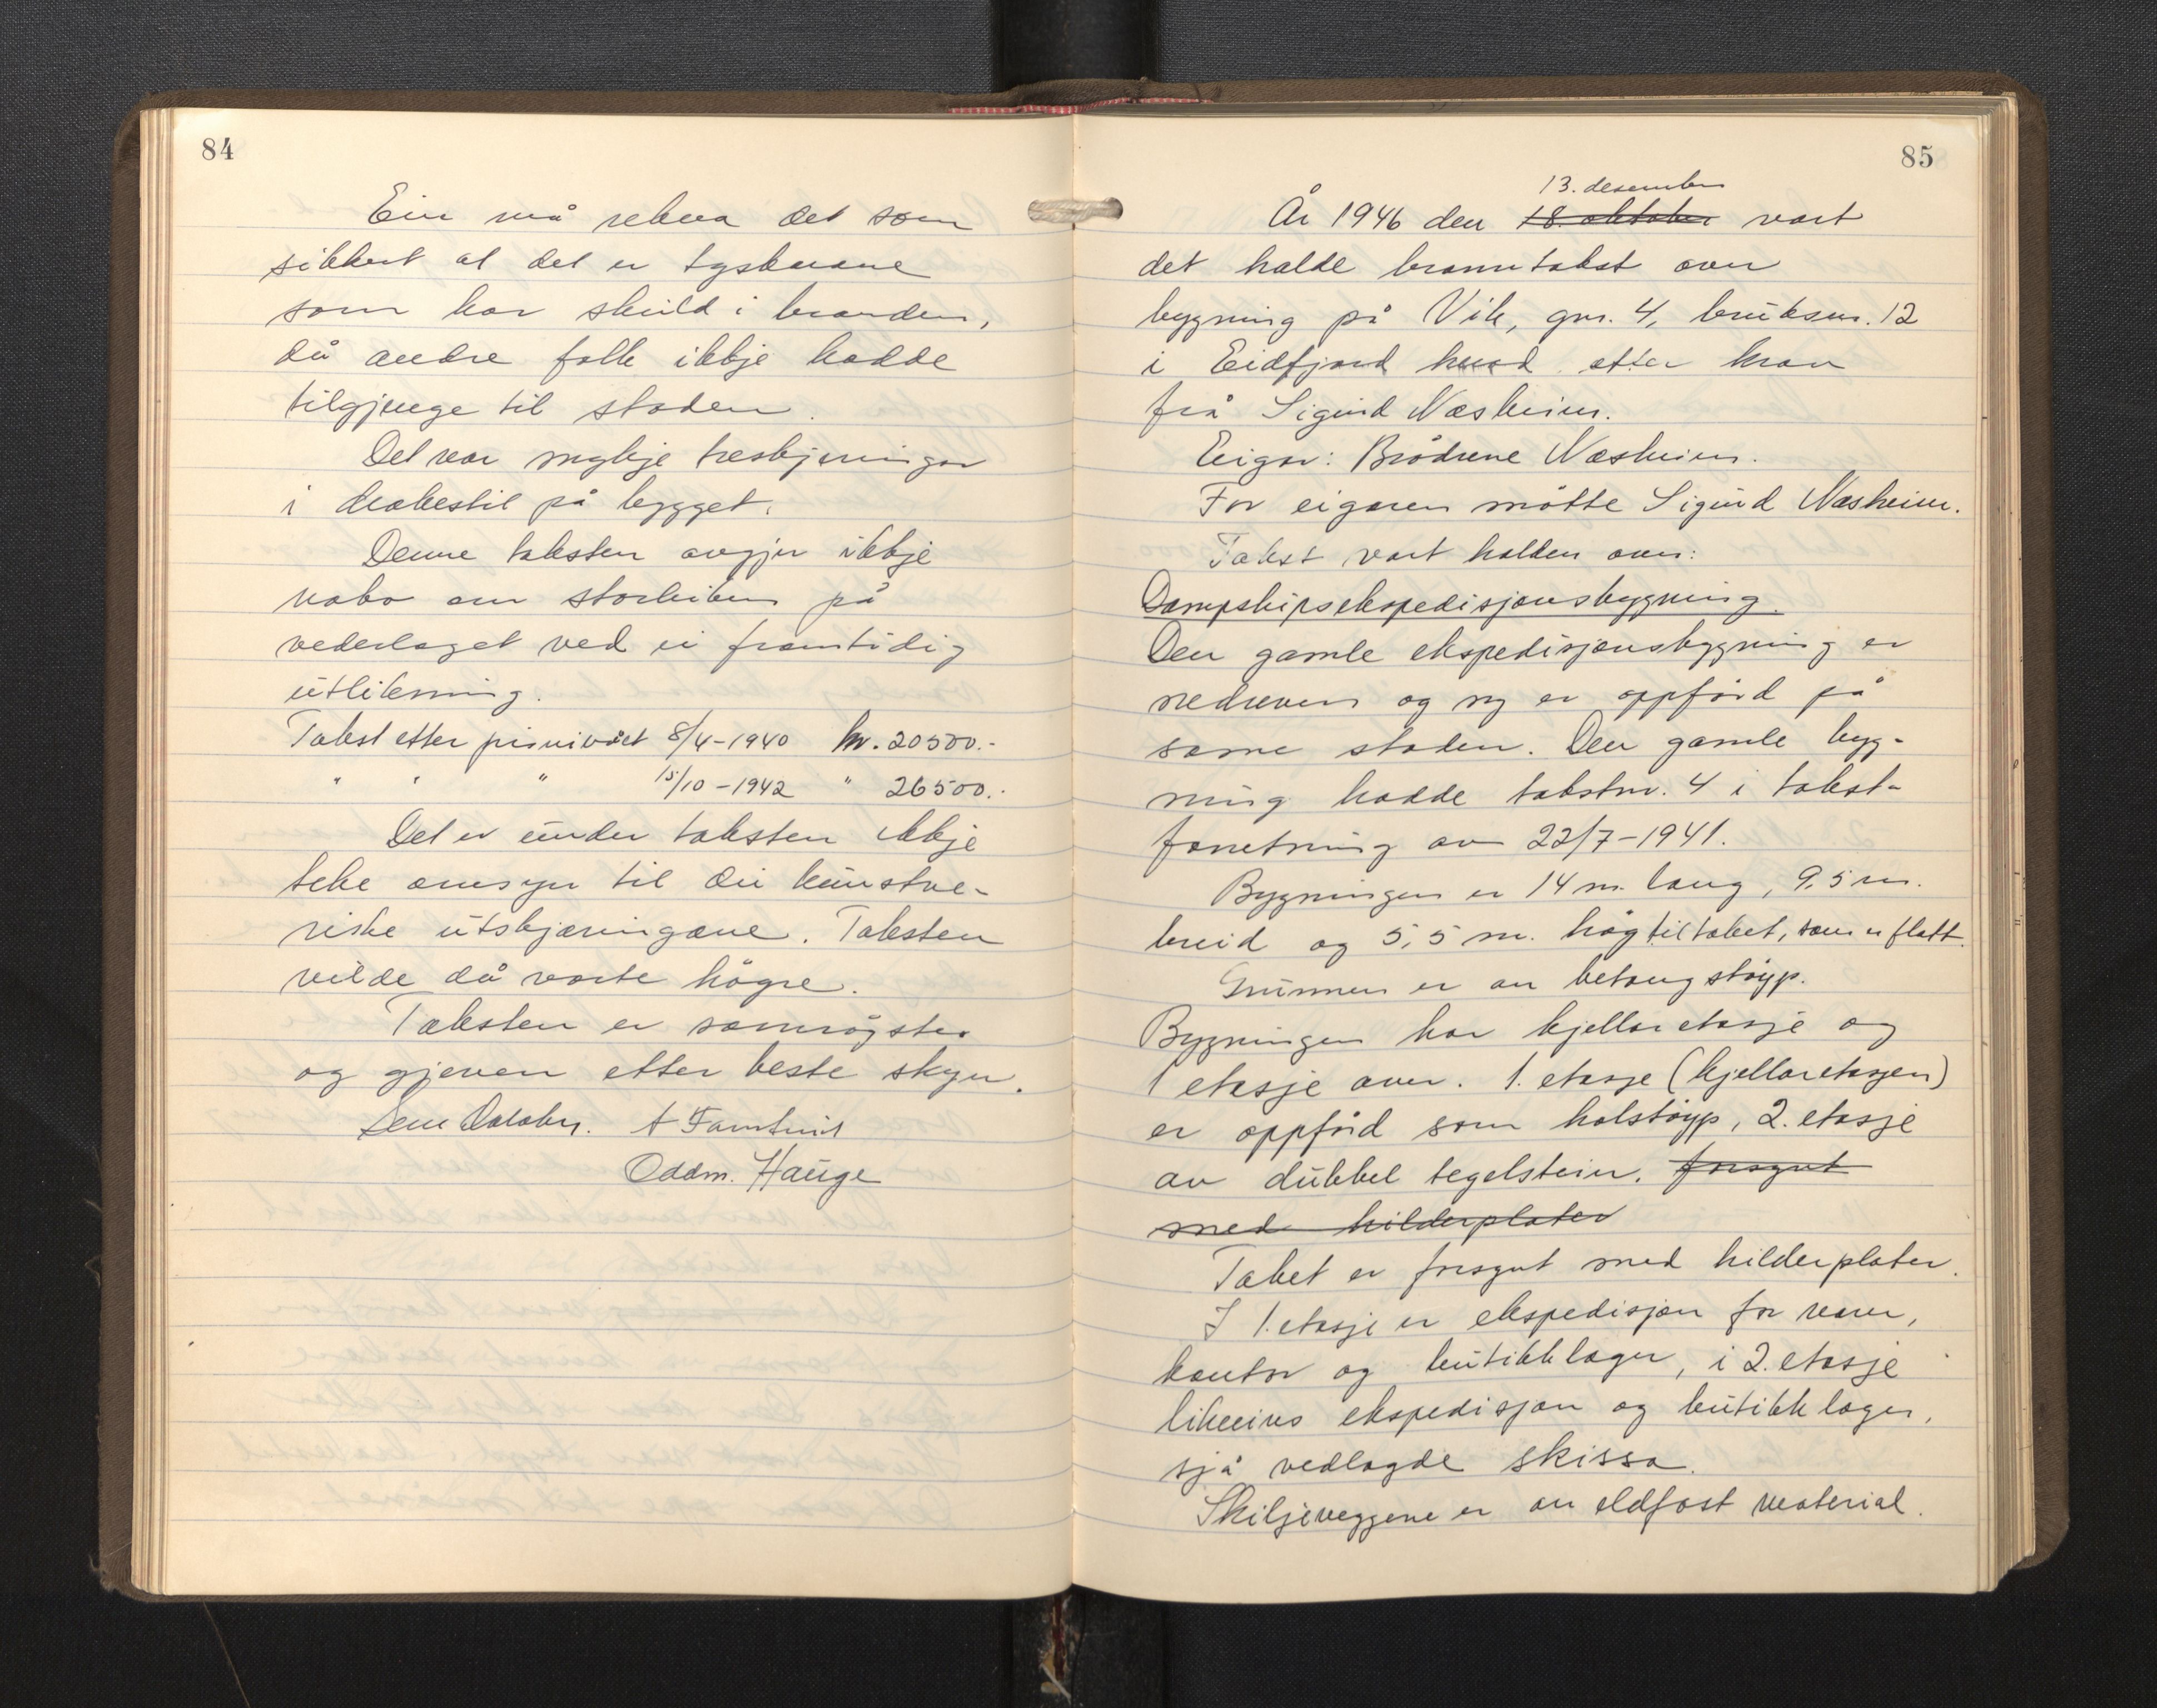 84
Ein må rekna det som
sikkert at det er tyskarane
som har skuld i branden,
då andre folk ikkje hadde
tilgjenge til staden.
Det var mykje treskjeringar
i drakestil på bygget.
Denne taksten avgjer ikkje
noko om storleiken på
vederlaget ved ei framtidig
utlikning.
Takst etter prisnivået 8/4-1940 kr. 20500.-
" " " 15/10-1942 " 26500.-
Det er under taksten ikkje
teke omsyn til dei kunstne-
riske utskjæringane. Taksten
vilde då vorte högre.
Taksten er samrøystes
og gjeven etter beste skyn.
A
Oddm. Hauge
85
13. desember
År 1946 den 18. oktober vart
det halde branntakst over
bygning på Vik, gnr. 4, bruksnr. 12
i Eidfjord herad etter krav
frå Sigurd Næsheim.
Eigar: Brödrene Næsheim.
For eigaren mötte Sigurd Næsheim.
Takst vart halden over:
Dampskipsekspedisjonsbygning.
Den gamle ekspedisjonsbygning er
nedreven og ny er oppförd på
same staden. Den gamle byg-
ning hadde takstnr. 4 i takst-
forretning av 22/7-1941.
Bygningen er 14 m. lang, 9,5 m.
breid og 5,5 m. hög til taket, som er flatt.
Grunnen er av betongstöyp.
Bygningen har kjellaretasje og
1 etasje over. 1. etasje (kjellaretasjen)
er oppförd som holstöyp, 2. etasje
av dubbel tegelstein. forsynt
med hilderplater
Taket er forsynt med hilderplater.
I 1. etasje er ekspedisjon for varer,
kontor og butikklager, i 2. etasje
likeeins ekspedisjon og butikklager,
sjå vedlagde skissa.
Skiljeveggene er av eldfast material.